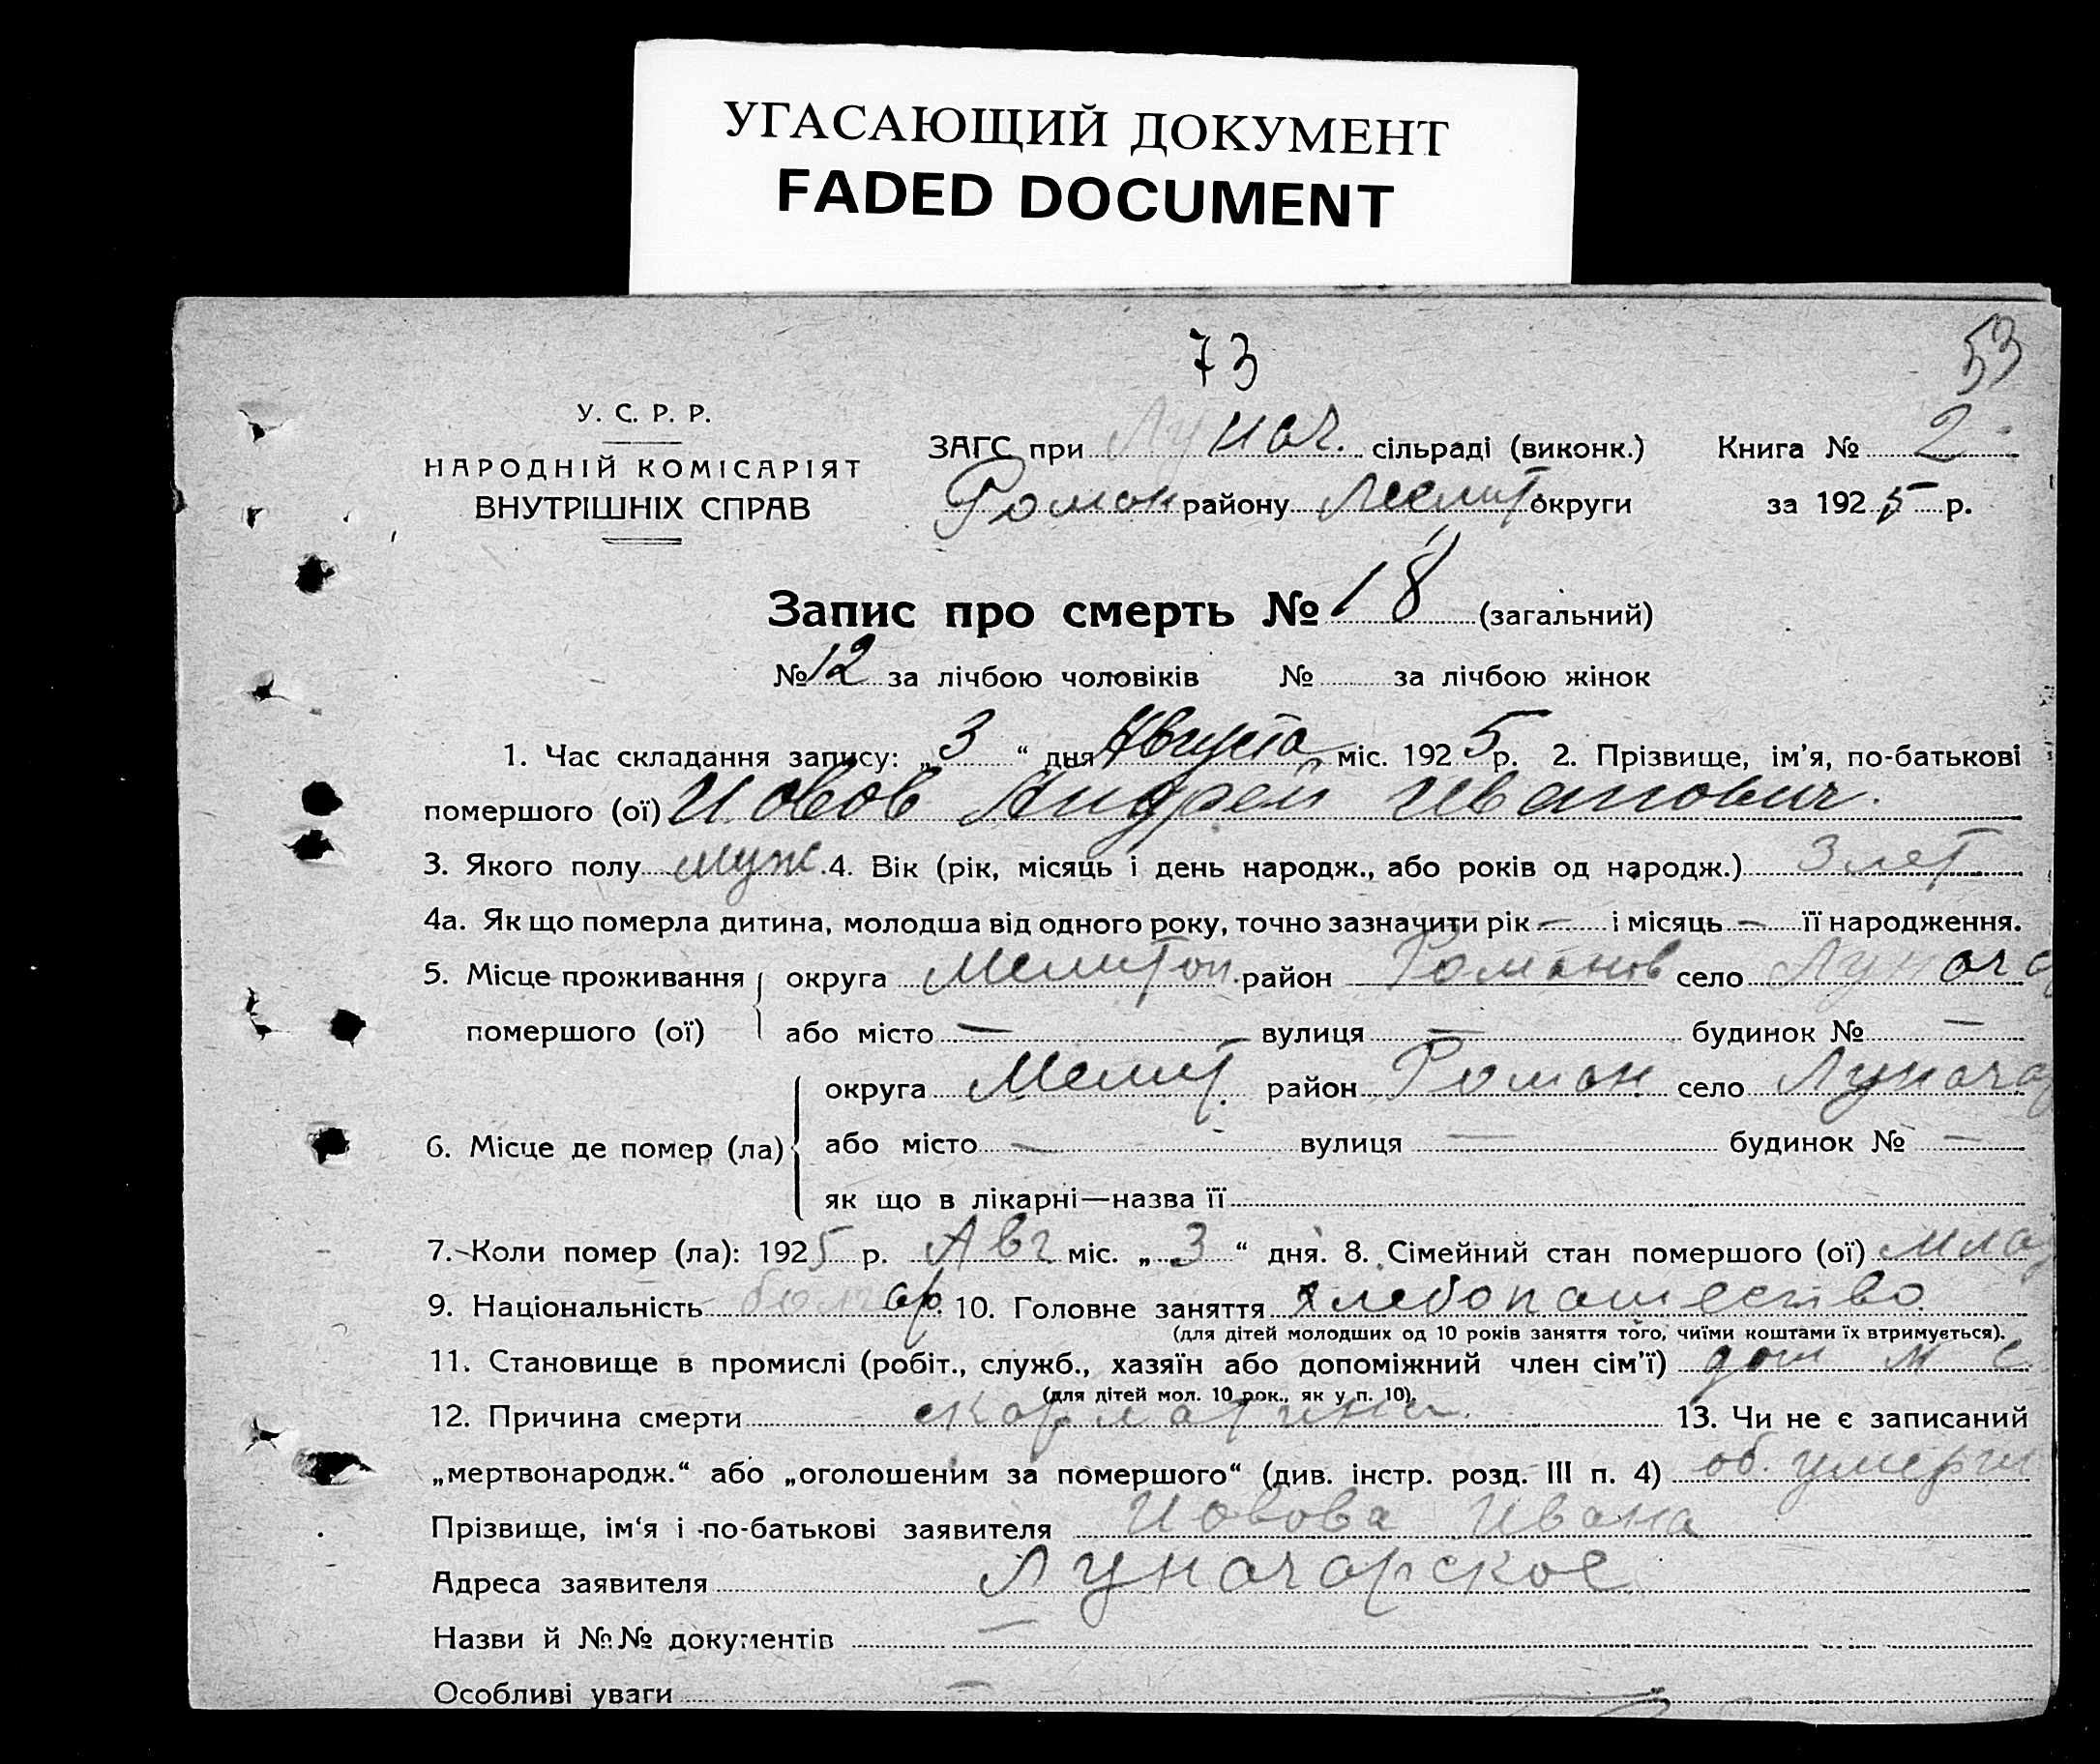 УГАСАЮЩИЙ ДОКУМЕНТ
FADED DOCUMENT
73
53
У. С. Р. Р.
НАРОДНІЙ КОМІСАРІЯТ
ВНУТРІШНІХ СПРАВ
ЗАГС при Лунач. сільраді (виконк.) Книга № 2
Роман району Мелит округи за 1925 р.
Запис про смерть № 18 (загальний)
№ 12 за лічбою чоловіків № за лічбою жінок
1. Час складання запису: „3“ дня Августа міс. 1925 р. 2. Прізвище, ім'я, по-батькові
помершого (ої) Иовов Андрей Иванович.
3. Якого полу муж. 4. Вік (рік, місяць і день народж., або років од народж.) 3 лет
4а. Як що померла дитина, молодша від одного року, точно зазначити рік — і місяць — її народження.
5. Місце проживання помершого (ої) округа Мелитоп. район Романов село Луначар
або місто — вулиця — будинок № —
6. Місце де помер (ла) округа Мелит. район Роман. село Луначар
або місто — вулиця — будинок № —
як що в лікарні—назва її
7. Коли помер (ла): 1925 р. Авг міс. „3“ дня. 8. Сімейний стан помершого (ої) млад
9. Національність болгар. 10. Головне заняття хлебопашество
(для дітей молодших од 10 років заняття того, чиїми коштами їх втримується).
11. Становище в промислі (робіт., служб., хазяїн або допоміжний член сім'ї)
(для дітей мол. 10 рок., як у п. 10).
12. Причина смерти скарлатина. 13. Чи не є записаний
„мертвонародж.“ або „оголошеним за помершого“ (див. інстр. розд. III п. 4) об. умерш
Прізвище, ім'я і по-батькові заявителя Иовова Ивана
Адреса заявителя Луначарское
Назви й №№ документів —
Особливі уваги —